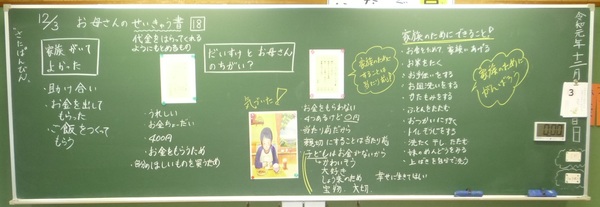 12/3
お母さんのせいきゅう書 18
代金をはらってくれる
ようにもとめるもの
家族がいて
よかった
・助け合い
・お金を出して
もらった
・ご飯をつくって
もらう
・うれしい
・お金ちょーだい
・400円
・お金をもらうため
・自分のほしいものを買うため
だいすけとお母さん
のちがい?
気づいた!
家族のために
することは
当たり前!
お金をもらわない
4つあるけど0円
当たり前だから
親切にすることは当たり前
子どもはお金がないから
かわいそう
大好き
しょう来のため 幸せに生きてほしい
宝物、大切
家族のためにできること
・お米をたく
・お手伝いをする
・お皿洗いをする
・かたもみをする
・ふとんをたたむ
・おつかいに行く
・トイレそうじをする
・洗たく干し たたむ
・妹のめんどうをみる
・上ばきを自分で洗う
家族のために
がんばろう
令和元年 十二月
3
日